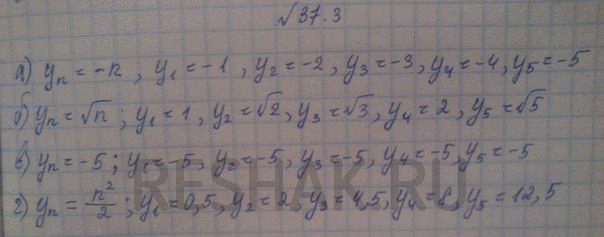 № 37.3
а) yₙ = -n ; y₁ = -1 , y₂ = -2 , y₃ = -3 , y₄ = -4 , y₅ = -5
б) yₙ = √n ; y₁ = 1 , y₂ = √2 , y₃ = √3 , y₄ = 2 , y₅ = √5
в) yₙ = -5 ; y₁ = -5 , y₂ = -5 , y₃ = -5 , y₄ = -5 , y₅ = -5
г) yₙ = n²/2 ; y₁ = 0,5 , y₂ = 2 , y₃ = 4,5 , y₄ = 8 , y₅ = 12,5
RESHAK.RU